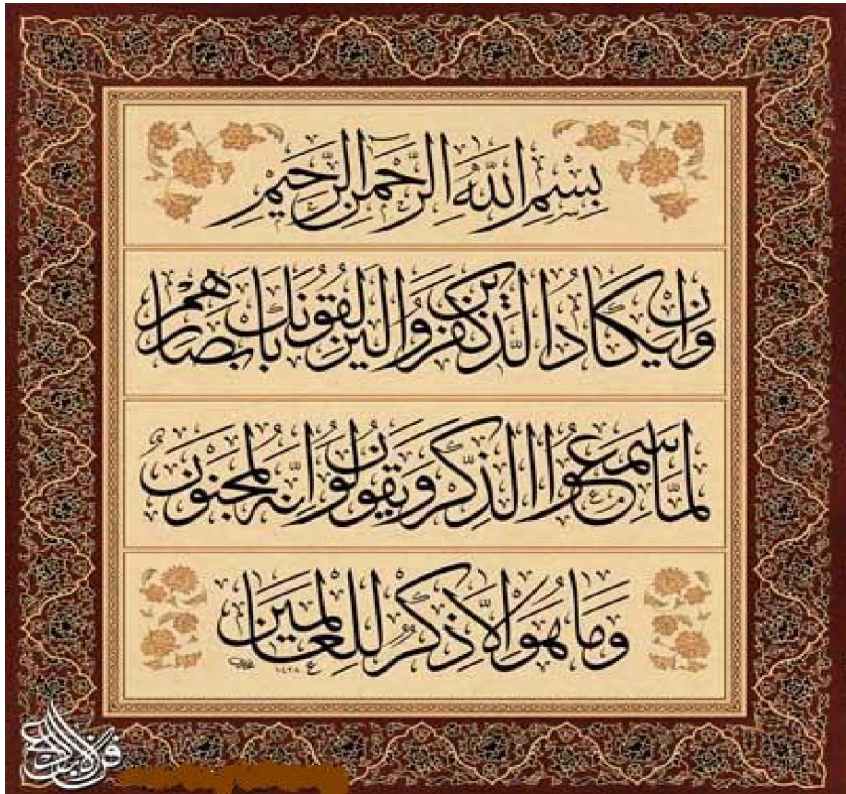 بِسْمِ اللَّهِ الرَّحْمَٰنِ الرَّحِيمِ
وَإِن يَكَادُ الَّذِينَ كَفَرُوا لَيُزْلِقُونَكَ بِأَبْصَارِهِمْ
لَمَّا سَمِعُوا الذِّكْرَ وَيَقُولُونَ إِنَّهُ لَمَجْنُونٌ
وَمَا هُوَ إِلَّا ذِكْرٌ لِلْعَالَمِينَ
١٤٢٨